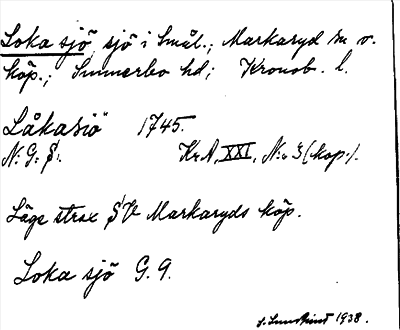 Loka sjö, sjö i Smål.; Markaryd sn o.
köp.; Sunnerbo hd; Kronob. l.
Låkasiö 1745.
N: G: S:.
Kr.A. XXI, N:o 3 (kop.).
Läge strax SV Markaryds köp.
Loka sjö G. 9.
1938.